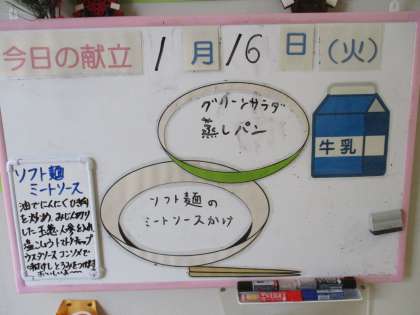 今日の献立 1月16日(火)
グリーンサラダ
蒸しパン
牛乳
ソフト麺の
ミートソースかけ
ソフト麺
ミートソース
油でにんにくひき肉
を炒め、みじん切り
した玉葱、人参を入れ
塩こしょうトマトケチャップ
ウスターソースコンソメで